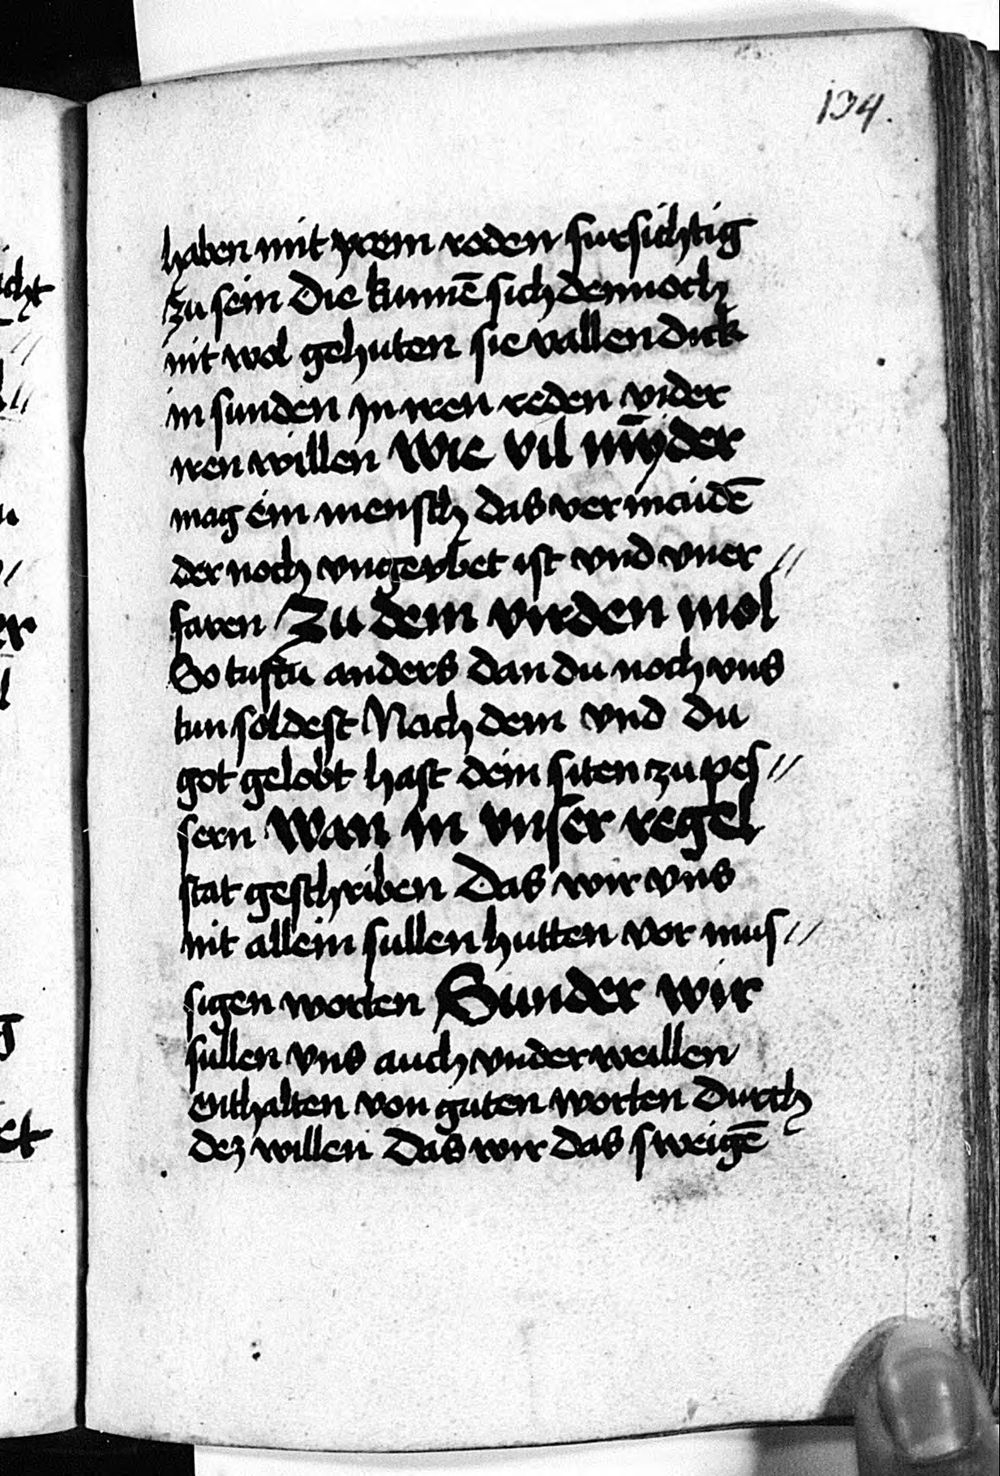 134.
haben mit yrem reden fursichtig
zu sein Die kunnē sich dennoch
nit wol gehuten sie vallen dick
in sunden in iren reden wider
iren willen Wie vil mȳder
mag ein mensch das vermeidē
der noch vngeubet ist vnd vner //
faren Zu dem virden mol
So tustu anders dan du noch vns
tun soldest Nach dem vnd du
got gelobt hast dein siten zu pes //
sern Wan in vnser regel
stat geschriben Das wir vns
nit allein sullen hutten vor mus //
sigen worten Sunder wir
sullen vns auch vnderweillen
enthalten von guten worten Durch
dez willen Das wir das sweigē